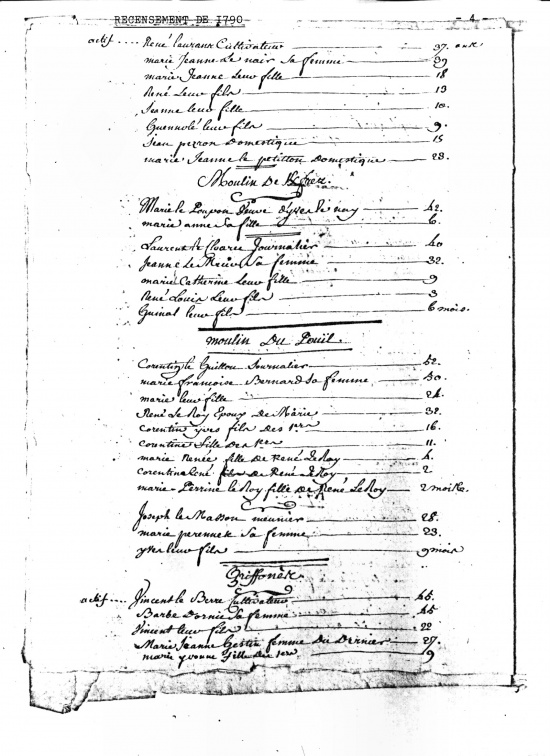 RECENSEMENT DE 1790 - 4 -
actif .... René Cultivateur 37. ans
marie Jeanne Le noir Sa femme 39
marie Jeanne Leur fille 18
René Leur fils 13
Jeanne leur fille 10.
Guennolé leur fils 9.
Jean perron Domestique 15
marie Jeanne le petitton Domestique 23.
Moulin De
Marie le Poupon Veuve d'yves le 42.
marie anne sa fille 6.
Laurent le Journalier 40
Jeanne Le Sa femme 32.
marie Catherine Leur fille 9
René Louis Leur fils 3
Guinal leur fils 6 mois.
moulin Du Pouil.
Corentin le Guillou Journalier 52.
marie françoise Bernard Sa femme 50.
marie leur fille 24.
René Le Roy Epoux De Marie 32.
Corentin yves fils des 1ers 16.
Corentine fille des 1er 11.
marie Renée fille de René Le Roy 4.
Corentin René fils de René Le Roy 2
marie Perrine le Roy fille de René Le Roy 2 mois.
Joseph le Masson meunier 28.
marie perennek Sa femme 23.
yves leur fils 9 mois
Griffonès.
actif .... Vincent le Berre Cultivateur 45.
Barbe Dornic Sa femme 45
Vincent leur fils 22
Marie Jeanne Gestin femme Du Dernier 27.
marie yvonne fille des 1ers 9